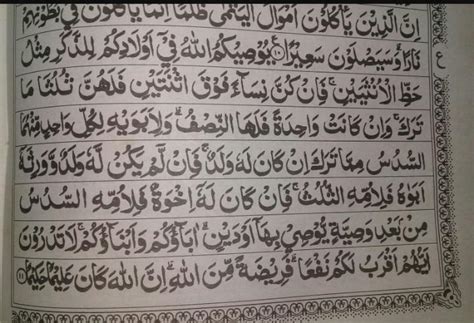 اِنَّ الَّذِيْنَ يَاْكُلُوْنَ اَمْوَالَ الْيَتٰمٰى ظُلْمًا اِنَّمَا يَاْكُلُوْنَ فِيْ بُطُوْنِهِمْ
نَارًا ؕ وَسَيَصْلَوْنَ سَعِيْرًا ۝۱۰ يُوْصِيْكُمُ اللّٰهُ فِيْۤ اَوْلَادِكُمْ لِلذَّكَرِ مِثْلُ ع
حَظِّ الْاُنْثَيَيْنِ ۚ فَاِنْ كُنَّ نِسَآءً فَوْقَ اثْنَتَيْنِ فَلَهُنَّ ثُلُثَا مَا
تَرَكَ ۚ وَاِنْ كَانَتْ وَاحِدَةً فَلَهَا النِّصْفُ ؕ وَلِاَبَوَيْهِ لِكُلِّ وَاحِدٍ مِّنْهُمَا
السُّدُسُ مِمَّا تَرَكَ اِنْ كَانَ لَهٗ وَلَدٌ ۚ فَاِنْ لَّمْ يَكُنْ لَّهٗ وَلَدٌ وَّوَرِثَهٗۤ
اَبَوٰهُ فَلِاُمِّهِ الثُّلُثُ ۚ فَاِنْ كَانَ لَهٗۤ اِخْوَةٌ فَلِاُمِّهِ السُّدُسُ
مِنْۢ بَعْدِ وَصِيَّةٍ يُّوْصِيْ بِهَاۤ اَوْ دَيْنٍ ؕ اٰبَآؤُكُمْ وَاَبْنَآؤُكُمْ ۚ لَا تَدْرُوْنَ
اَيُّهُمْ اَقْرَبُ لَكُمْ نَفْعًا ؕ فَرِيْضَةً مِّنَ اللّٰهِ ؕ اِنَّ اللّٰهَ كَانَ عَلِيْمًا حَكِيْمًا ۝۱۱